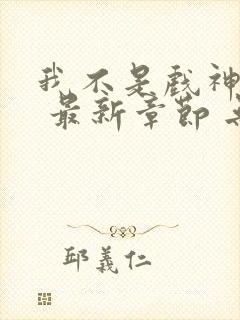 我不是戲神
最新章節
邱義仁